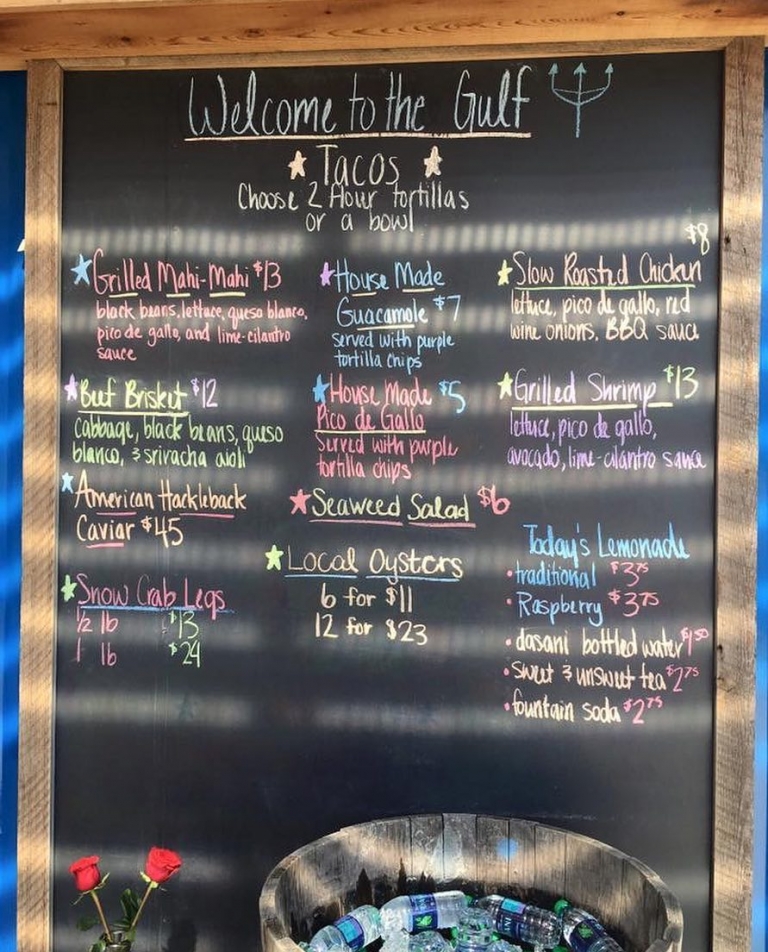 Welcome to the Gulf
Tacos
Choose 2 flour tortillas
or a bowl
Grilled Mahi-Mahi $13
black beans, lettuce, queso blanco,
pico de gallo, and lime-cilantro
sauce
Beef Brisket $12
cabbage, black beans, queso
blanco, & sriracha aioli
American Hackleback
Caviar $45
Snow Crab Legs
1/2 lb $13
1 lb $24
House Made
Guacamole $7
served with purple
tortilla chips
House Made $5
Pico de Gallo
Served with purple
tortilla chips
Seaweed Salad $6
Local Oysters
6 for $11
12 for $23
$8
Slow Roasted Chicken
lettuce, pico de gallo, red
wine onions, BBQ sauce
Grilled Shrimp $13
lettuce, pico de gallo,
avocado, lime-cilantro sauce
Today's Lemonade
• traditional $3.75
• Raspberry $3.75
• dasani bottled water $1.50
• sweet & unsweet tea $2.75
• fountain soda $2.75